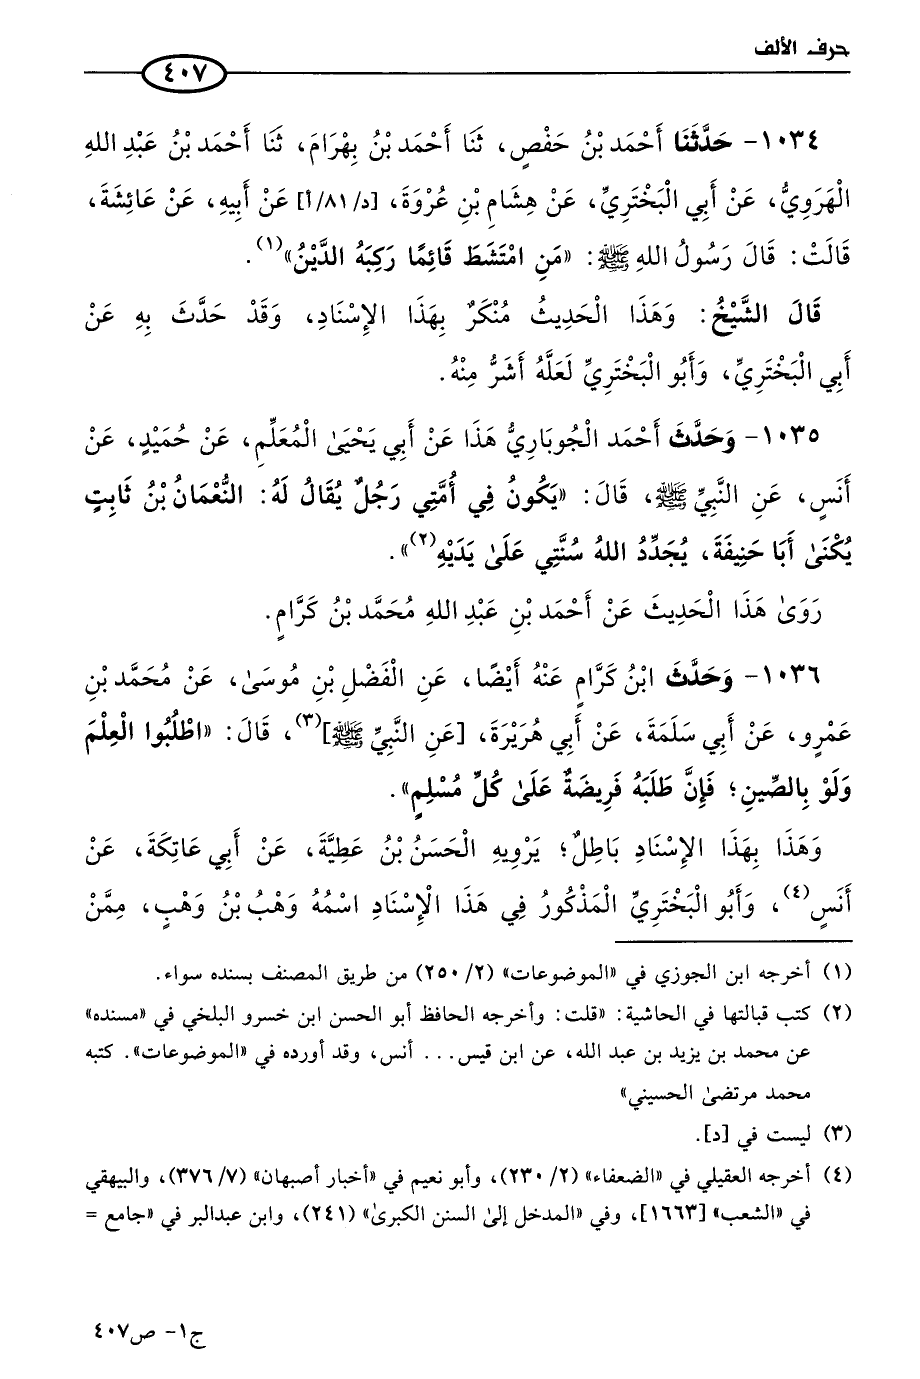 حرف الألف
٤٠٧
١٠٣٤- حَدَّثَنَا أَحْمَد بْنُ حَفْصٍ، ثَنَا أَحْمَد بْنُ بِهْرَامَ، ثَنَا أَحْمَد بْنُ عَبْدِ اللهِ
الْهَرَوِيُّ، عَنْ أَبِي الْبَخْتَرِيِّ، عَنْ هِشَامِ بْنِ عُرْوَةَ، [د/٨١/أ] عَنْ أَبِيهِ، عَنْ عَائِشَةَ،
قَالَتْ: قَالَ رَسُولُ اللهِ ﷺ: «مَنِ امْتَشَطَ قَائِمًا رَكِبَهُ الدَّيْنُ»(١).
قَالَ الشَّيْخُ: وَهَذَا الْحَدِيثُ مُنْكَرٌ بِهَذَا الإِسْنَادِ، وَقَدْ حَدَّثَ بِهِ عَنْ
أَبِي الْبَخْتَرِيِّ، وَأَبُو الْبَخْتَرِيِّ لَعَلَّهُ أَشَرُّ مِنْهُ.
١٠٣٥- وَحَدَّثَ أَحْمَد الْجُوبَارِيُّ هَذَا عَنْ أَبِي يَحْيَىٰ الْمُعَلِّمِ، عَنْ حُمَيْدٍ، عَنْ
أَنَسٍ، عَنِ النَّبِيِّ ﷺ، قَالَ: «يَكُونُ فِي أُمَّتِي رَجُلٌ يُقَالُ لَهُ: النُّعْمَانُ بْنُ ثَابِتٍ
يُكْنَىٰ أَبَا حَنِيفَةَ، يُجَدِّدُ اللهُ سُنَّتِي عَلَىٰ يَدَيْهِ(٢)».
رَوَىٰ هَذَا الْحَدِيثَ عَنْ أَحْمَد بْنِ عَبْدِ اللهِ مُحَمَّد بْنُ كَرَّامٍ.
١٠٣٦- وَحَدَّثَ ابْنُ كَرَّامٍ عَنْهُ أَيْضًا، عَنِ الْفَضْلِ بْنِ مُوسَىٰ، عَنْ مُحَمَّد بْنِ
عَمْرٍو، عَنْ أَبِي سَلَمَةَ، عَنْ أَبِي هُرَيْرَةَ، [عَنِ النَّبِيِّ ﷺ](٣)، قَالَ: «اطْلُبُوا الْعِلْمَ
وَلَوْ بِالصِّينِ؛ فَإِنَّ طَلَبَهُ فَرِيضَةٌ عَلَىٰ كُلِّ مُسْلِمٍ».
وَهَذَا بِهَذَا الإِسْنَادِ بَاطِلٌ؛ يَرْوِيهِ الْحَسَنُ بْنُ عَطِيَّةَ، عَنْ أَبِي عَاتِكَةَ، عَنْ
أَنَسٍ(٤)، وَأَبُو الْبَخْتَرِيِّ الْمَذْكُورُ فِي هَذَا الْإِسْنَادِ اسْمُهُ وَهْبُ بْنُ وَهْبٍ، مِمَّنْ
(١) أخرجه ابن الجوزي في «الموضوعات» (٢/ ٢٥٠) من طريق المصنف بسنده سواء.
(٢) كتب قبالتها في الحاشية: «قلت: وأخرجه الحافظ أبو الحسن ابن خسرو البلخي في «مسنده»
عن محمد بن يزيد بن عبد الله، عن ابن قيس... أنس، وقد أورده في «الموضوعات». كتبه
محمد مرتضىٰ الحسيني»
(٣) ليست في [د].
(٤) أخرجه العقيلي في «الضعفاء» (٢/ ٢٣٠)، وأبو نعيم في «أخبار أصبهان» (٧/ ٣٧٦)، والبيهقي
في «الشعب» [١٦٦٣]، وفي «المدخل إلىٰ السنن الكبرىٰ» (٢٤١)، وابن عبدالبر في «جامع =
ج١- ص٤٠٧